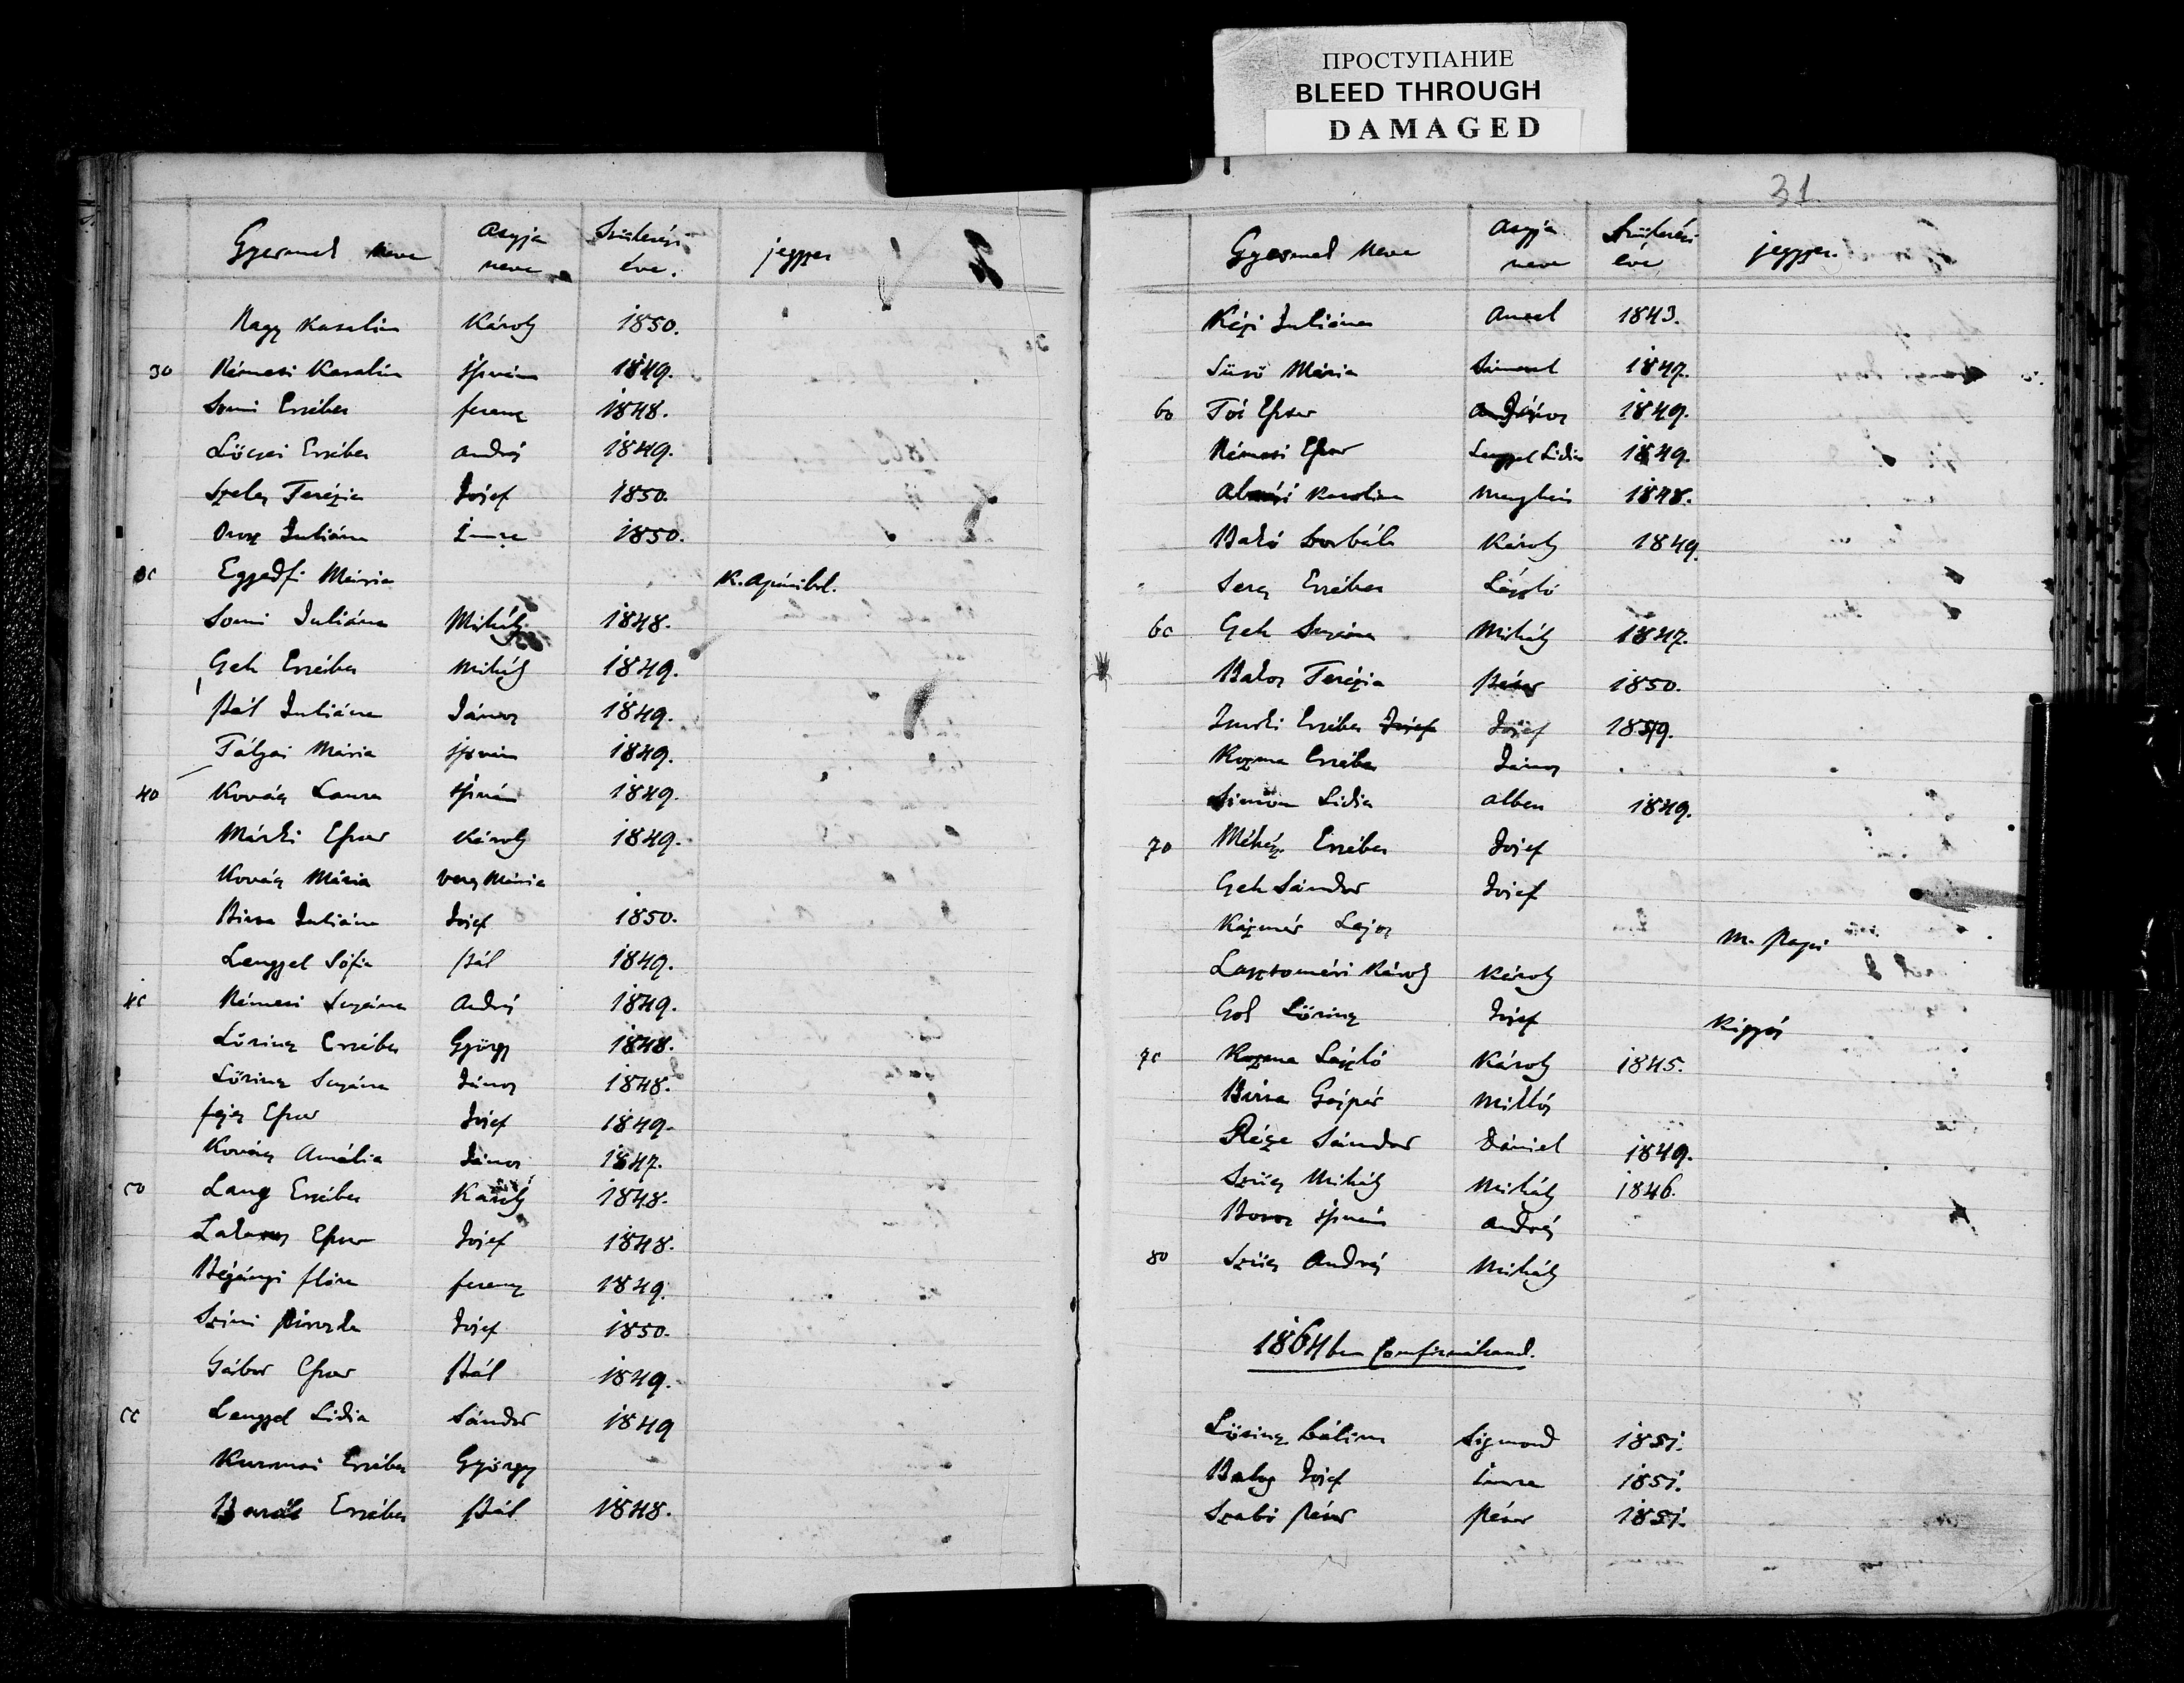 ПРОСТУПАНИЕ
BLEED THROUGH
DAMAGED
31
Gyermek neve Atyja neve Születési éve. jegyzet
Nagy Karolin Károly 1850.
30 Németi Karolin István 1849.
Somi Erzsébet ferenc 1848.
Lőcsei Erzsébet András 1849.
Szeles Terézia Josef 1850.
Orosz Juliána Imre 1850.
35 Egyedfi Mária K. Apátibol.
Somi Juliána Mihály 1848.
Geh Erzsébet Mihály 1849.
Pál Juliána János 1849.
Tályai Mária István 1849.
40 Kovács Laura István 1849.
Márki Eszter Károly 1849.
Kovács Mária Veres Mária
Birta Juliána Josef 1850.
Lengyel Sófia Pál 1849.
45 Németi Susána András 1849.
Lőrincz Erzsébet György 1848.
Lőrincz Susána János 1848.
fejes Eszter Josef 1849.
Kovács Amália János 1847.
50 Lang Erzsébet Károly 1848.
Lakatos Eszter Josef 1848.
Bégányi flóra ferencz 1849.
Szűcs Piroska Josef 1850.
Gábor Eszter Pál 1849.
55 Lengyel Lidia Sándor 1849
Kurmai Erzsébet György
Baráth Erzsébet Pál 1848.
Gyermek neve Atyja neve Születési éve jegyzet.
Kézi Juliána Antal 1843.
Sütő Mária Sámuel 1847.
60 Tót Eszter János 1849.
Németi Eszter Lengyel Lidia 1849.
Karolina Menyhért 1848.
Bakó Borbála Károly 1849.
Seres Erzsébet László
65 Geh Susána Mihály 1847.
Bakos Terézia Péter 1850.
Erzsébet Josef Josef 1849.
Kozma Erzsébet János
Simon Lidia Albert 1849.
70 Méhész Erzsébet Josef
Geh Sándor Josef
Kázmér Lajos M. Papi
Lasztoméri Károly Károly
Gol Lőrincz Josef Kigyós
75 Kozma László Károly 1845.
Birta Gáspár Miklós
Rége Sándor Dániel 1849.
Szűcs Mihály Mihály 1846.
Boros István András
80 Szűcs András Mihály
1864ben Confirmáltand.
Lőrincz bálint Sigmond 1851.
Balog Josef Imre 1851.
Szabó Péter Péter 1851.